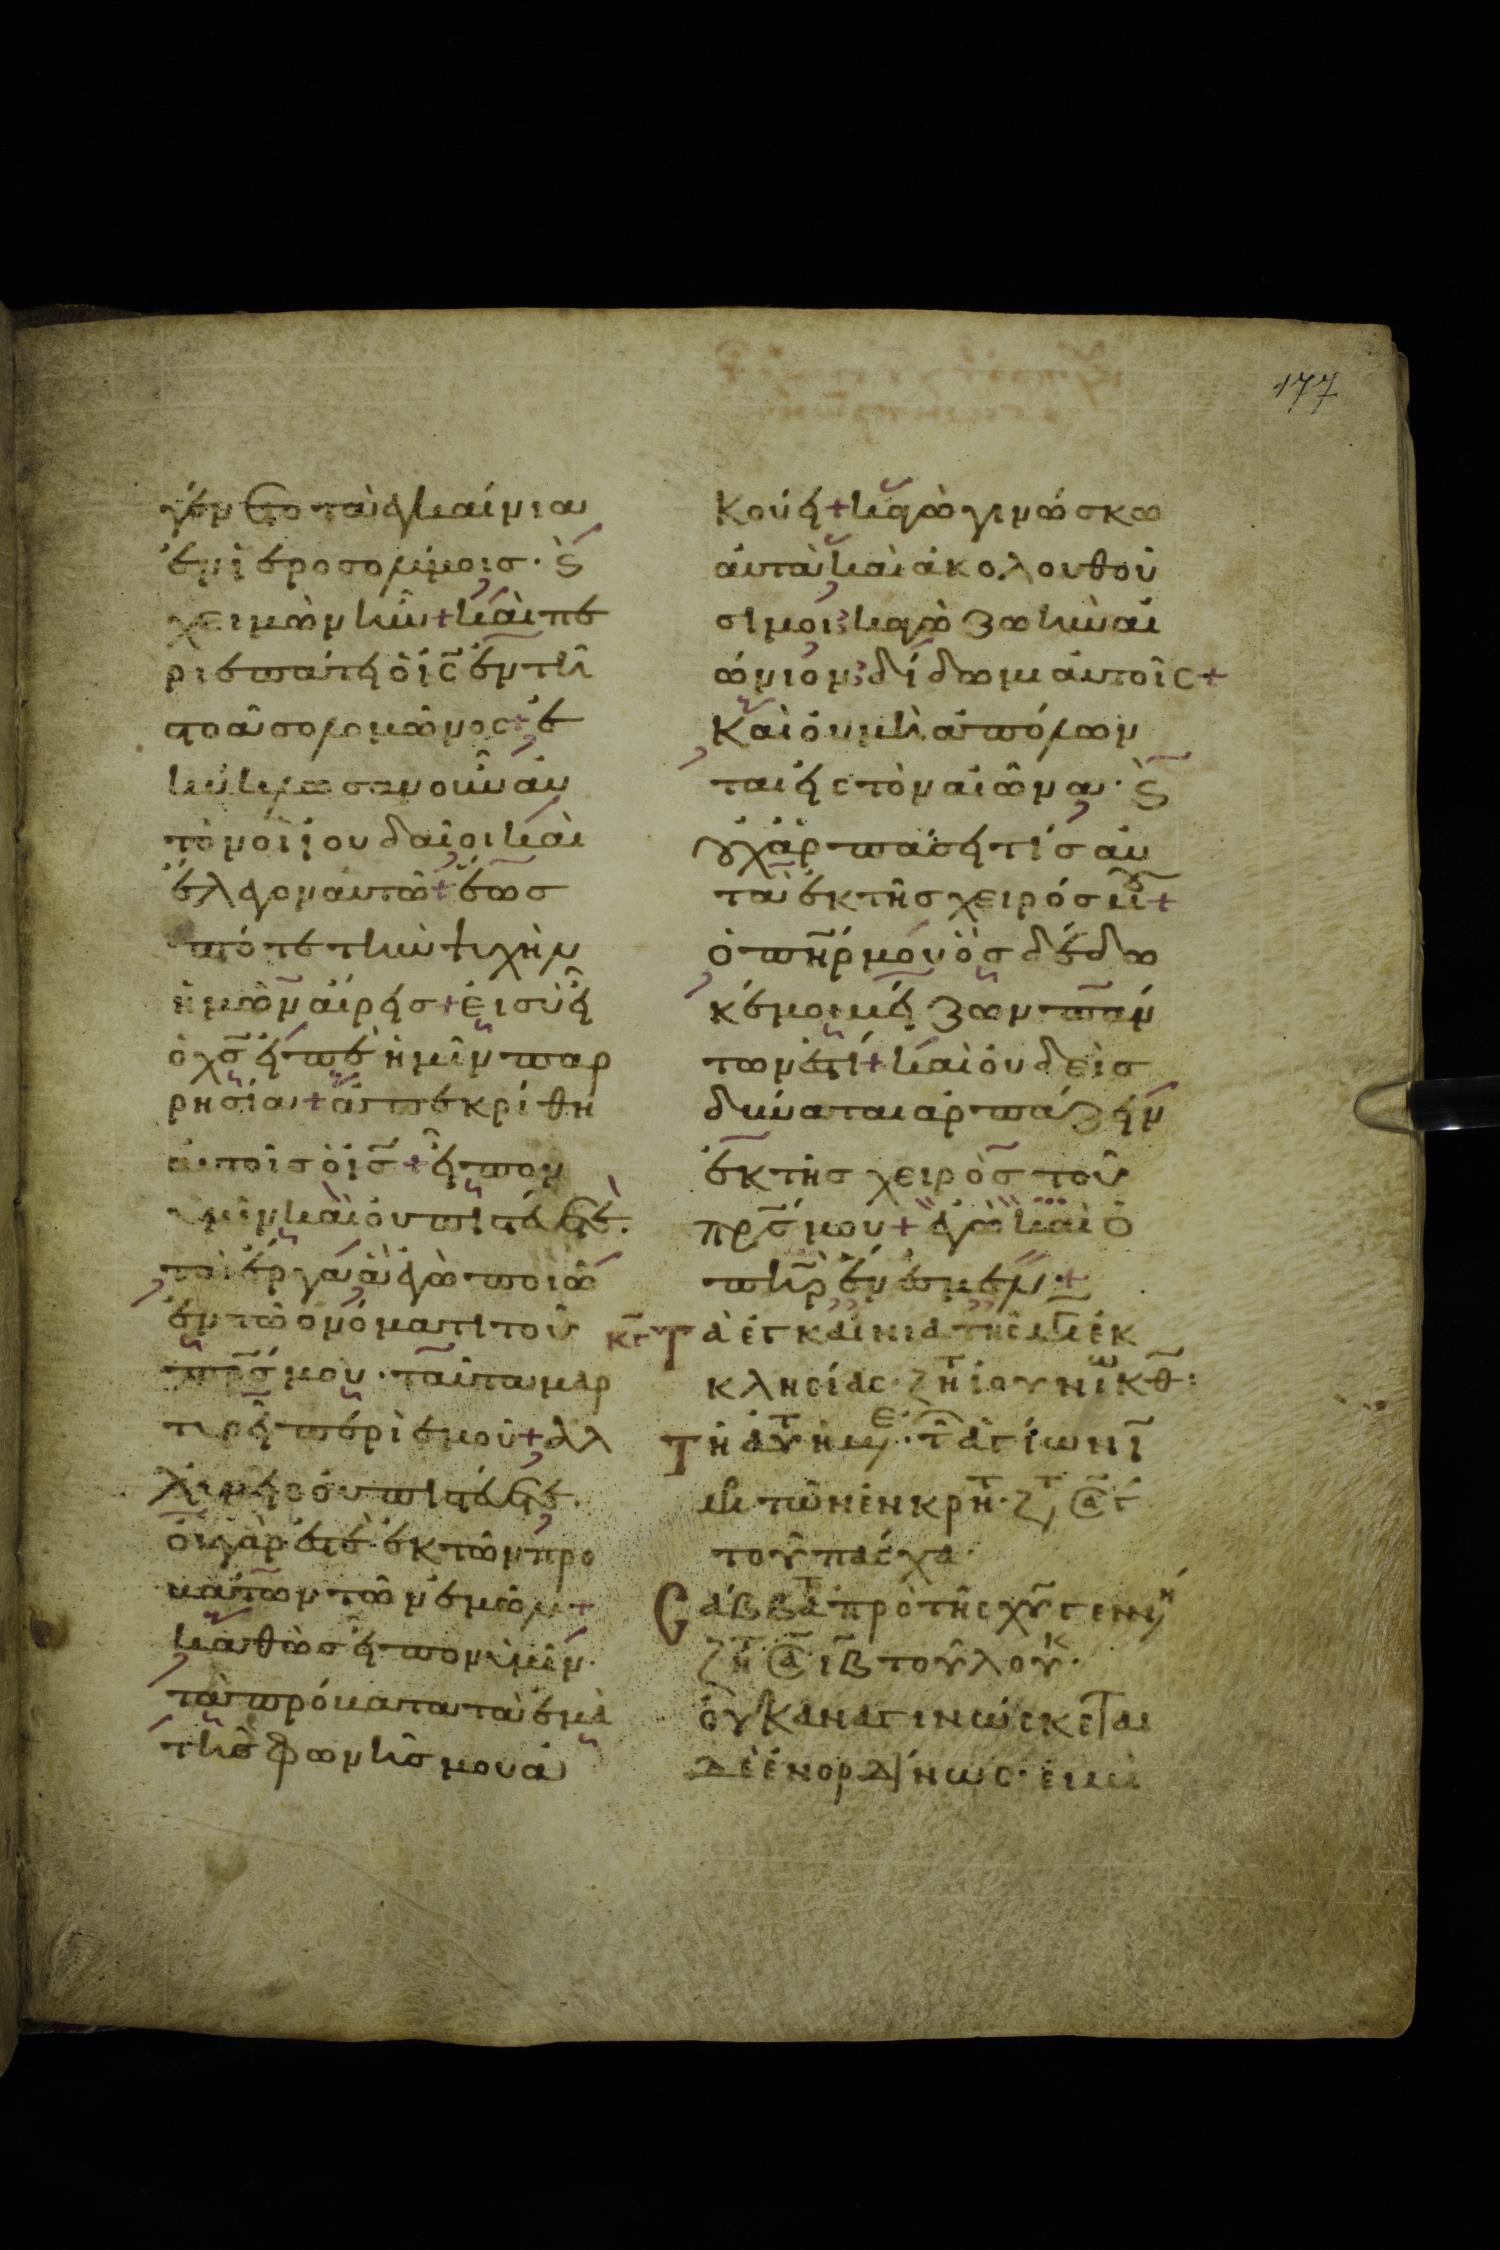 177
γένετο τὰ ἐγκαίνια
ἐν ἱεροσολύμοις· Ϛ
χειμὼν ἦν + καὶ πε
ριεπάτει ὁ ις ἐν τῆ
στοᾶ σολομῶνος + ἐ
κύκλωσαν οὖν αυ
τὸν οἱ ἰουδαῖοι καὶ
ἔλεγον αυτῶ + ἕως
πότε τὴν ψυχὴν
ἡμῶν αίρεις + εἰ σὺ εἶ
ὁ χς ειπὲ ἡμῖν παρ
ρησία + ἀπεκρίθη
αυτοῖς ὁ ις + εἶπον
υμῖν καὶ ου πιστεύετε.
τὰ ἔργα ἃ ἐγὼ ποιῶ
ἐν τῶ ονόματι τοῦ
πρς μου· ταῦτα μαρ
τυρεῖ περὶ εμοῦ + αλλ
υμεῖς ου πιστεύετε.
ου γάρ εστὲ ἐκ τῶν προ
βάτων τῶν εμῶν +
καθὼς εἶπον υμῖν·
τὰ πρόβατα τὰ εμὰ
τῆς φωνῆς μου α
κούει + καγὼ γινώσκω
αυτὰ καὶ ακολουθοῦ
σι μοι· καγὼ ζωὴν αι
ώνιον δίδωμι αυτοῖς +
Καὶ ου μὴ απόλων
ται εις τὸν αιῶνα· Ϛ
ουχ ἁρπάσει τίς αυ
τὰ ἐκ τῆς χειρός μου +
ὁ πηρ μου ὃς δέδω
κέ μοι μείζων παν
των εστί + καὶ ουδεὶς
δύναται αρπάζειν
ἐκ τῆς χειρὸς τοῦ
πρς μου + εγὼ καὶ ὁ
πηρ ἕν εσμεν +
Τὰ ἐγκαίνια τῆς
κλησίας· ζητ ἰουνίω κθ:
τοῦ πάσχα·
Σάββατ πρὸ τῆς χυ γενν
ζητ ιβ τοῦ λουκ·
οὐκ αναγινώσκεται
δὲ ἐνορδίνως·